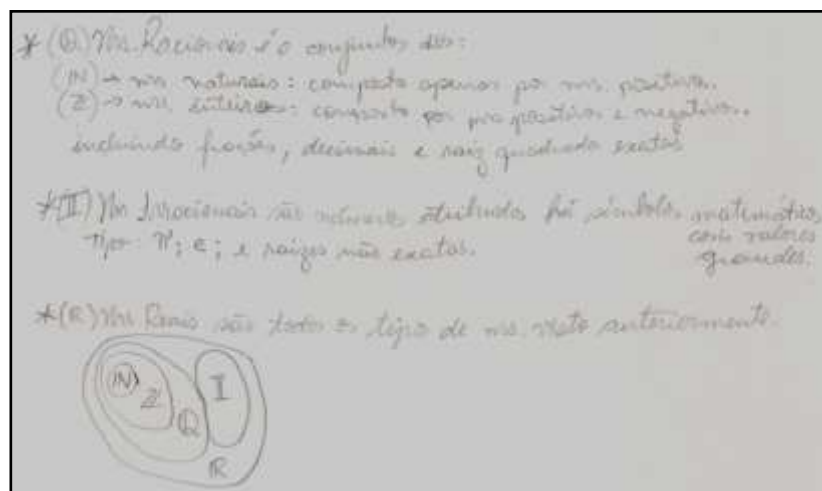 * (Q) Nos Racionais é o conjuntos dos:
(N) → nos naturais: composto apenas por nos. positivos.
(Z) → nos inteiros: composto por nos positivos e negativos.
incluindo frações, decimais e raiz quadrada exatas
* (I) Nos Irracionais são números atribuídos há símbolos matemáticos
tipo: π; e; e raízes não exatas. com valores
grandes.
* (R) Nos Reais são todos os tipo de nos. visto anteriormente.
N
Z
Q
I
R